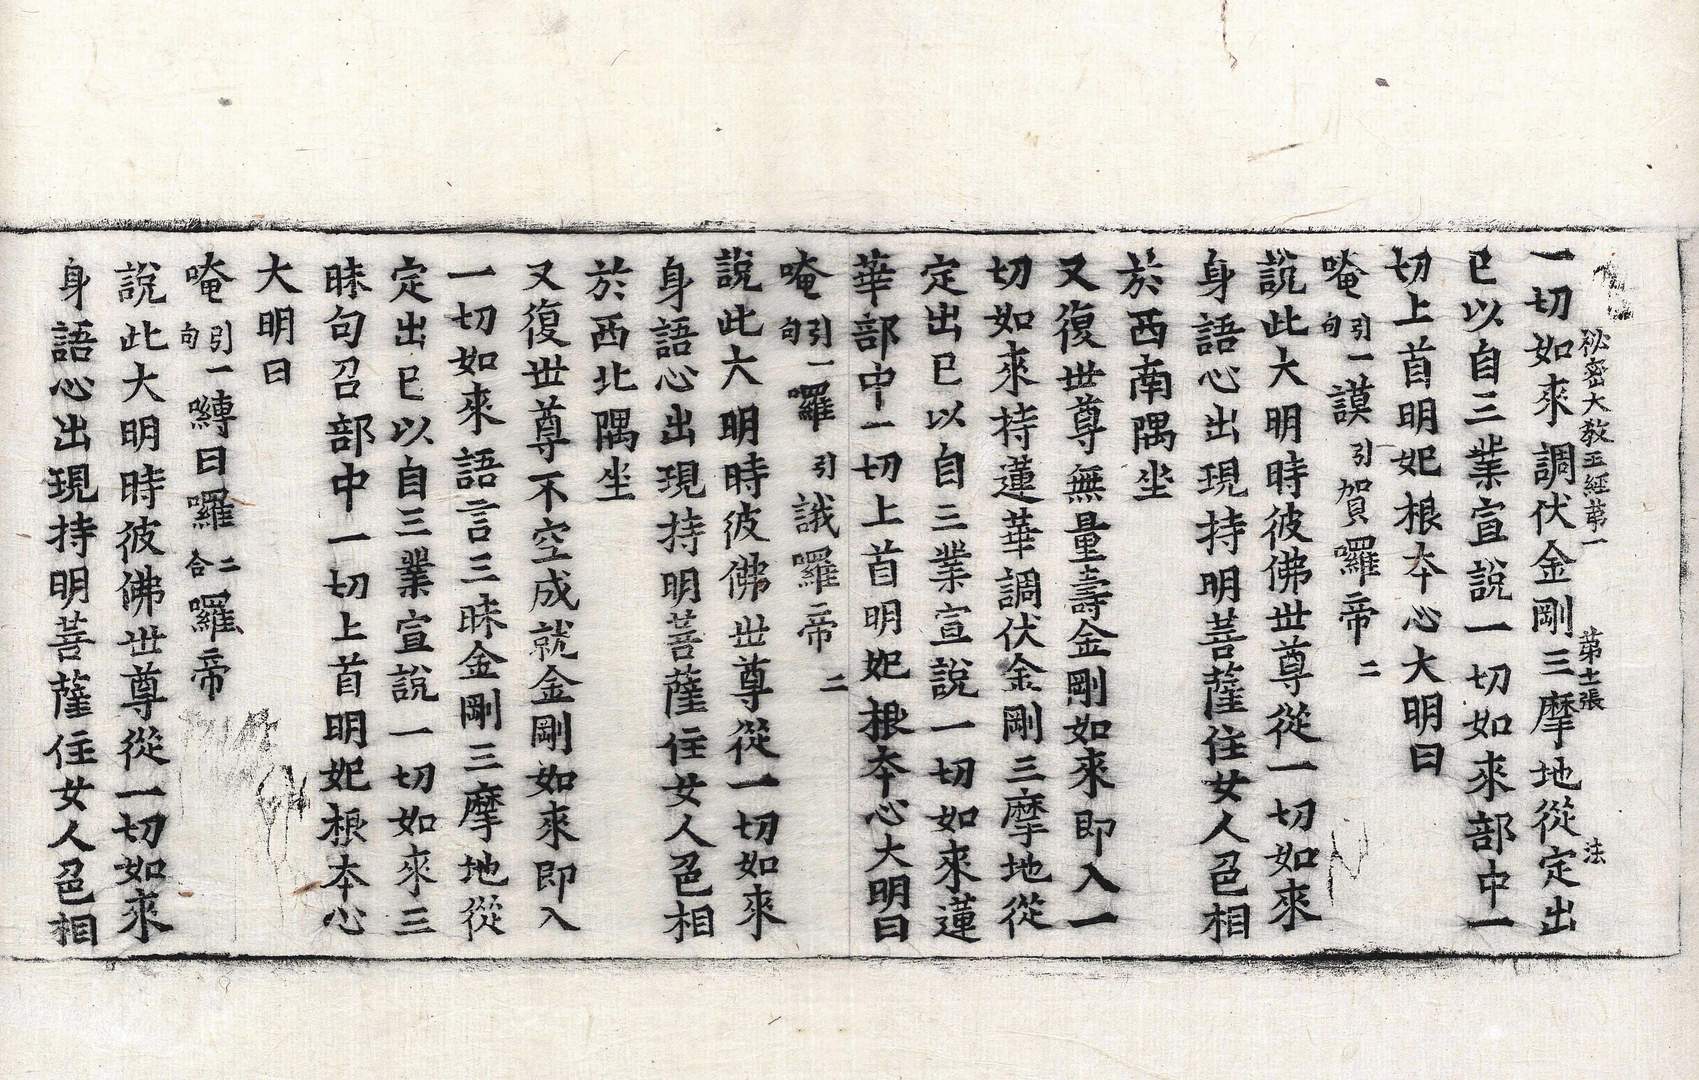 祕密大教王經第一 第士張 法
一切如來調伏金剛三摩地從定出
已以自三業宣說一切如來部中一
切上首明妃根本心大明曰
唵引一句謨引賀囉帝二
說此大明時彼佛世尊從一切如來
身語心出現持明菩薩住女人色相
於西南隅坐
又復世尊無量壽金剛如來即入一
切如來持蓮華調伏金剛三摩地從
定出已以自三業宣說一切如來蓮
華部中一切上首明妃根本心大明曰
唵引一句囉引誐囉帝二
說此大明時彼佛世尊從一切如來
身語心出現持明菩薩住女人色相
於西北隅坐
又復世尊不空成就金剛如來即入
一切如來語言三昧金剛三摩地從
定出已以自三業宣說一切如來三
昧句召部中一切上首明妃根本心
大明曰
唵引一句嚩曰囉二合囉帝
說此大明時彼佛世尊從一切如來
身語心出現持明菩薩住女人色相